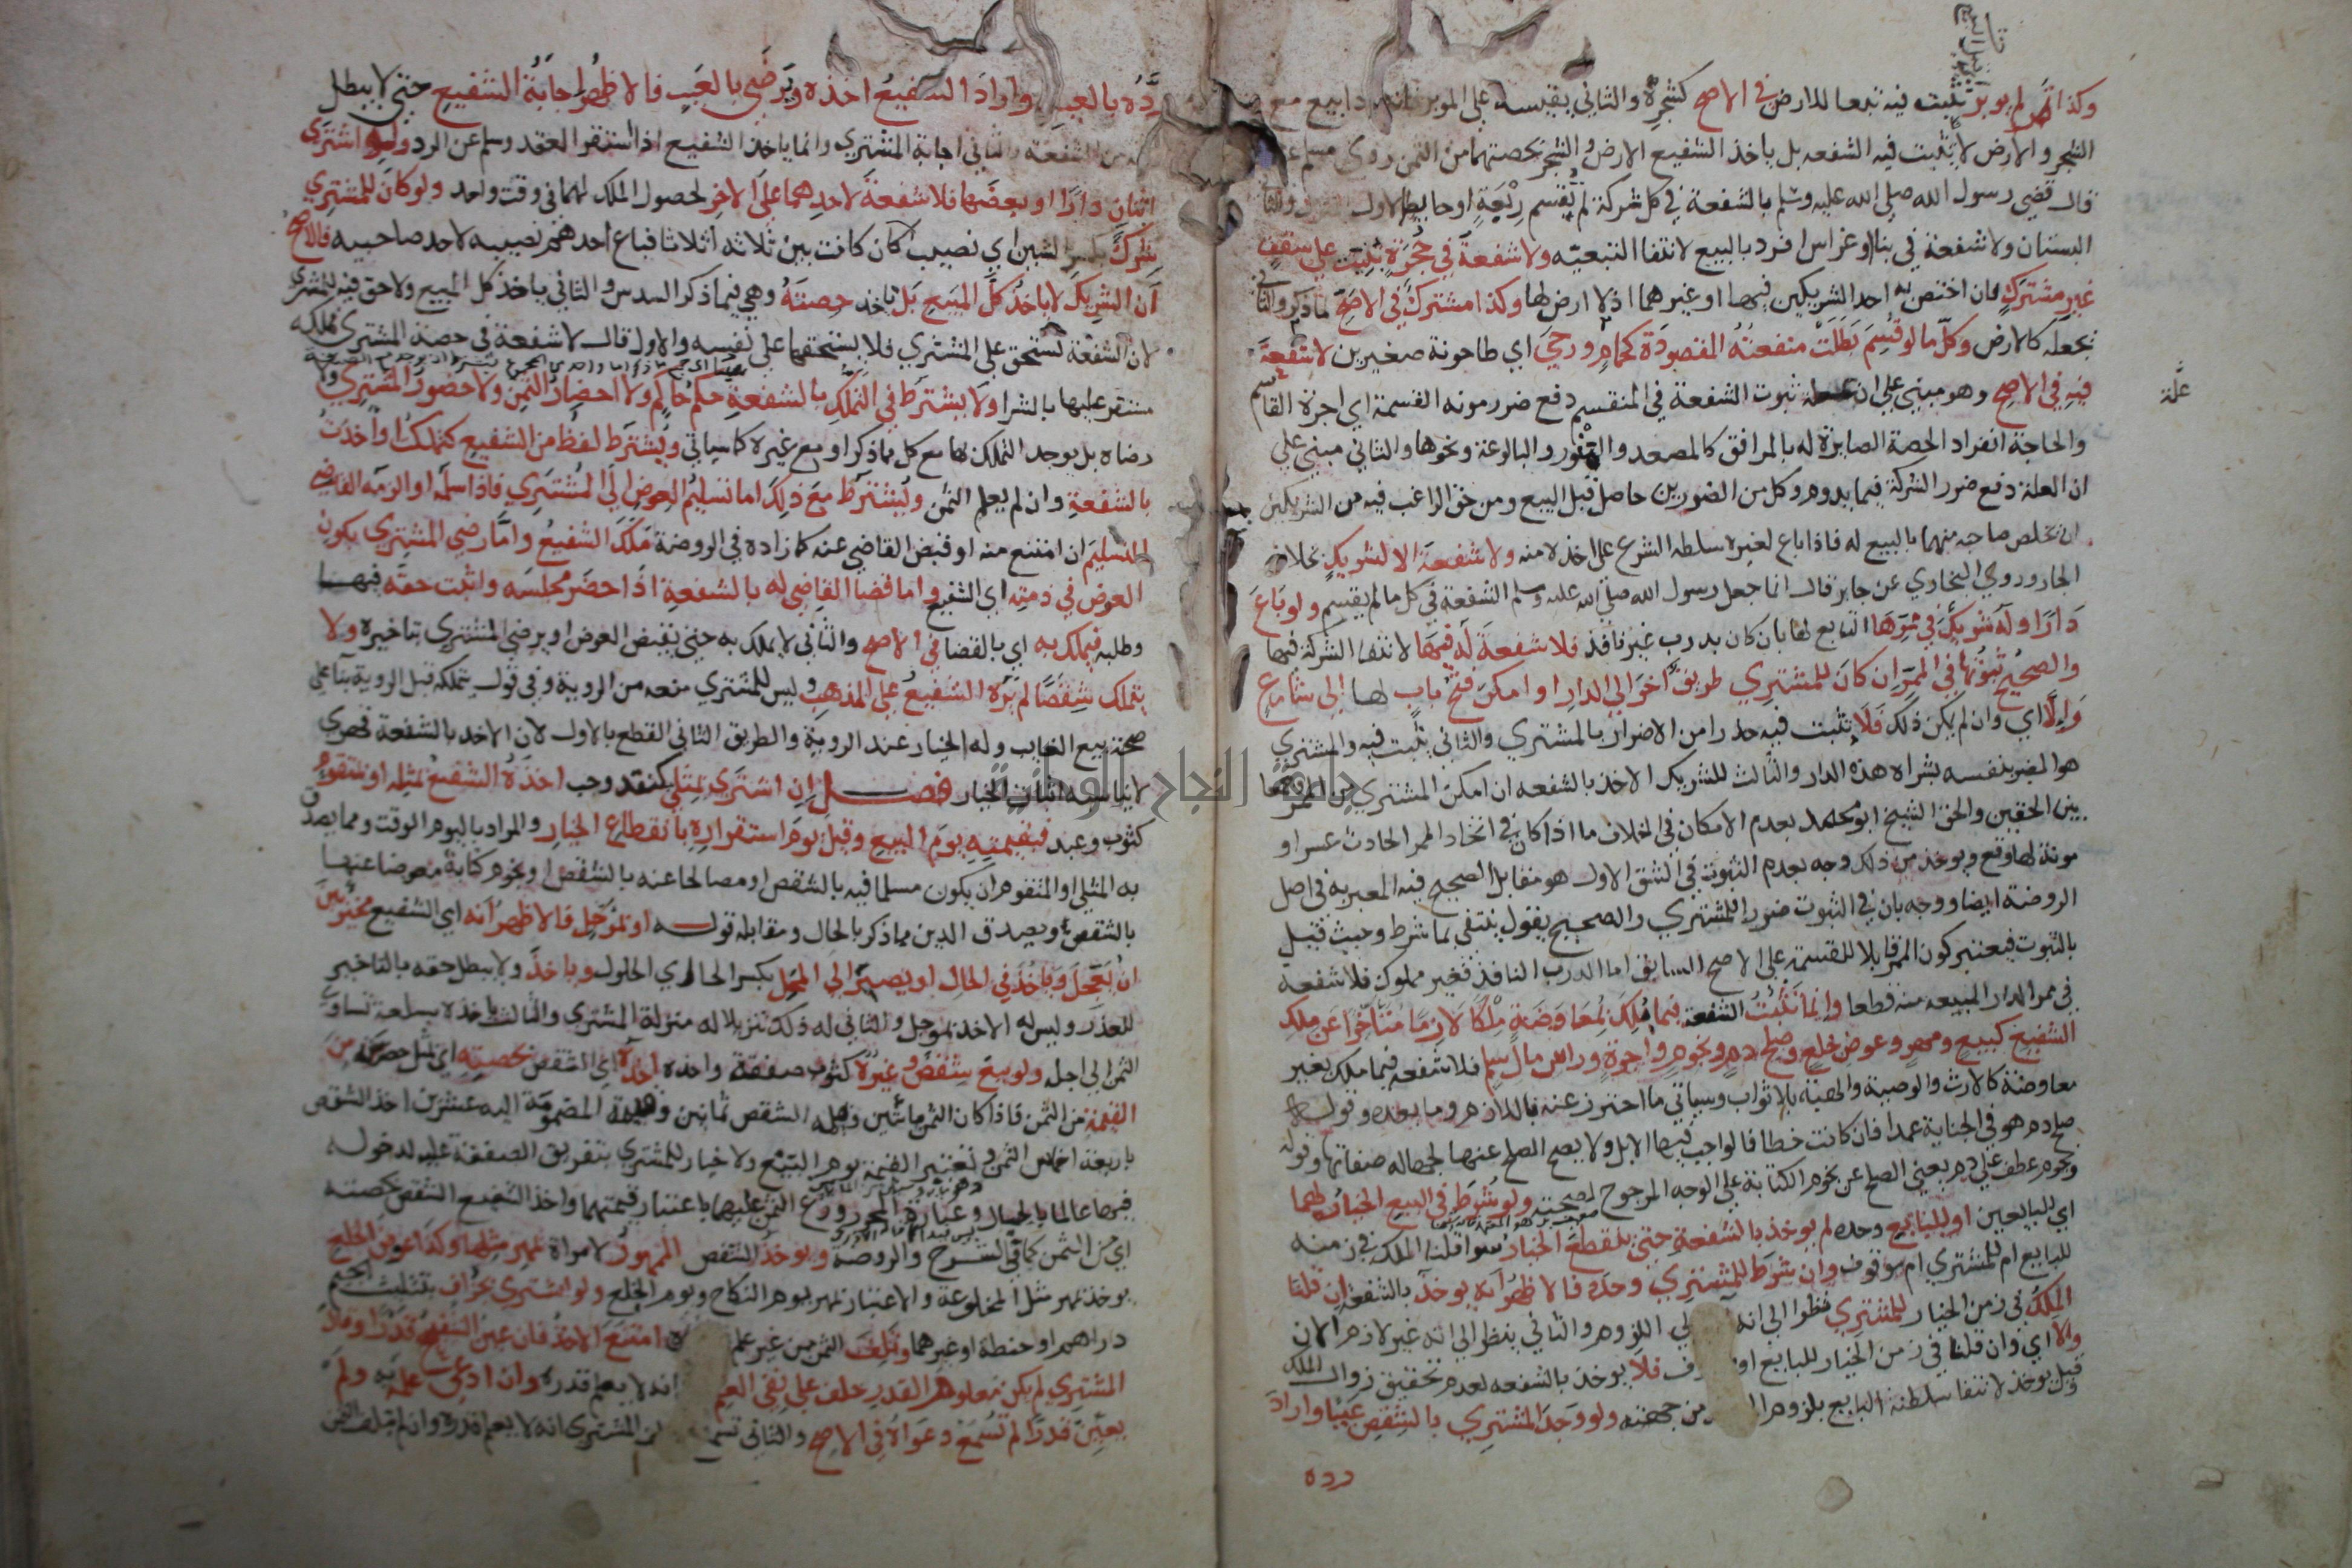 وكذا ثمر لم يوبر تثبت فيه تبعا للارض في الاصح كشجره والثاني يقيسه على الموبر دا بيع مع
الشجر والارض لا تثبت فيه الشفعه بل ياخذ الشفيع الارض والشجر بحصتهما من الثمن روى مسلم عن
قال قضى رسول الله صلى الله عليه وسلم بالشفعة في كل شركة لم تقسم ربعة او حايط الاول
البستان ولا شفعة في بنا او غراس افرد بالبيع لانتفا التبعيه ولا شفعة في حجرة بنيت على سقف
غير مشترك بان اختص به احد الشريكين فيها او غيرهما اذ لا ارض لها وكذا مشترك في الاصح لما ذكر والثاني
يجعله كالارض وكل ما لو قسم بطلت منفعته المقصودة كحمام ورحى اي طاحونة صغيرين لا شفعة
فيه في الاصح وهو مبني على ان علة ثبوت الشفعة في المنقسم دفع ضرر مونه القسمة اي اجرة القاسم
علة
والحاجة انفراد الحصة الصايرة له بالمرافق كالمصعد والمنور والبالوعة ونحوها والثاني مبني على
ان العلة دفع ضرر الشركة فيما يدوم وكل من الضررين حاصل قبل البيع ومن حق الراغب فيه من الشريكين
ان يخلص صاحبه منهما بالبيع له فاذا باع لغيره سلطه الشرع على اخذه منه ولا شفعة الا لشريك بخلاف
الجار وروى البخاري عن جابر قال انما جعل رسول الله صلى الله عليه وسلم الشفعة في كل ما لم يقسم ولو باع
دارا وله شريك في ممرها التابع لها بان كان بدرب غير نافذ فلا شفعة له فيها لانتفا الشركة فيها
والصحيح ثبوتها في الممر ان كان للمشتري طريق اخر الى الدار او امكن فتح باب لها الى شارع
والا اي وان لم يكن ذلك فلا تثبت فيه حذرا من الاضرار بالمشتري والثاني يثبت فيه والمشتري
هو المضر بنفسه بشراه هذه الدار والثالث للشريك الاخذ بالشفعه ان امكن المشتري من الممر
بين الحقين والحق الشيخ ابو محمد بعدم الامكان في الخلاف ما اذا كان في اتخاذ الممر الحادث عسر او
مونة لها وقع ويوخذ من ذلك وجه بعدم الثبوت في الشق الاول هو مقابل الصحيح فيه المعبر به في اصل
الروضة ايضا ووجه بان في الثبوت ضررا للمشتري والصحيح يقول ينتفي بما شرط وحيث قيل
بالثبوت فيعتبر كون الممر قابلا للقسمة على الاصح السابق اما الدرب النافذ فغير مملوك فلا شفعة
في ممر الدار المبيعه منه قطعا وانما تثبت الشفعة فيما ملك بمعاوضة ملكا لازما متاخرا عن ملك
الشفيع كمبيع ومهر وعوض خلع وصلح دم ونجوم واجرة وراس مال سلم فلا شفعه فيما ملك بغير
معاوضة كالارث والوصية والهبة بلا ثواب وسياتي ما احترز عنه باللازم وما بعده وقوله
صلح دم هو في الجناية عمدا فان كانت خطا فالواجب فيها الابل ولا يصح الصلح عنها لجهالة صفاتها وقوله
ونجوم عطف على دم يعني الصلح عن نجوم الكتابة على الوجه المرجوح لصحته ولو شرط في البيع الخيار لهما
اي للبايعين او للبايع وحده لم يوخذ بالشفعة حتى ينقطع الخيار سوا قلنا الملك في زمنه
للبايع ام للمشتري ام موقوف وان شرط للمشتري وحده فالاظهر انه يوخذ بالشفعة ان قلنا
الملك في زمن الخيار للمشتري نظرا الى انه اللزوم والثاني ينظر الى انه غير لازم الان
والا اي وان قلنا في زمن الخيار للبايع او فلا يوخذ بالشفعه لعدم تحقيق زوال الملك
وقيل يوخذ لانتفا سلطنة البايع بلزوم من جهته ولو وجد المشتري بالشقص عيبا واراد
رده
رده بالعيب واراد الشفيع اخذه ويرضى بالعيب فالاظهر اجابة الشفيع حتى لا يبطل
حقه من الشفعة والثاني اجابة المشتري وانما ياخذ الشفيع اذا استقر العقد وسلم عن الرد ولو اشترى
اثنان دارا او بعضها فلا شفعة لاحدهما على الاخر لحصول الملك لهما في وقت واحد ولو كان للمشتري
شرك بكسر الشين اي نصيب كان كانت بين ثلاثه اثلاثا فباع احدهم نصيبه لاحد صاحبيه فالاصح
ان الشريك لا ياخذ كل المبيع بل ياخذ حصته وهي فيما ذكر السدس والثاني ياخذ كل المبيع ولا حق فيه للمشتري
لان الشفعة تستحق على المشتري فلا يستحقها على نفسه والاول قال لا شفعة في حصة المشتري فملكه
مستقر عليها بالشرا ولا يشترط في التملك بالشفعة حكم حاكم ولا احضار الثمن ولا حضور المشتري ولا
رضاه بل يوجد التملك بها مع كل مما ذكر او مع غيره كما سياتي ويشترط لفظ من الشفيع كتملكت او اخذت
بالشفعة وان لم يعلم الثمن ويشترط مع ذلك اما تسليم العوض الى المشتري فاذا سلمه او الزمه القاضي
التسليم ان امتنع منه او قبض القاضي عنه كما زاده في الروضة ملك الشفيع واما رضى المشتري بكون
العوض في ذمته اي الشفيع واما قضا القاضي له بالشفعة اذا حضر مجلسه واثبت حقه فيها
وطلبه فيملك به اي بالقضا في الاصح والثاني لا يملك به حتى يقبض العوض او يرضى المشتري بتاخيره ولا
يتملك شقصا لم يره الشفيع على المذهب وليس للمشتري منعه من الروية وفي قول يتملكه قبل الروية بنا على
صحة بيع الغايب وله الخيار عند الروية والطريق الثاني القطع بالاول لان الاخذ بالشفعة قهري
لا يناسبه اثبات الخيار فصل ان اشترى بمثلي كنقد وحب اخذه الشفيع بمثله او بمتقوم
كثوب وعبد فبقيمته يوم البيع وقيل يوم استقراره بانقطاع الخيار والمراد باليوم الوقت ومما يصدق
به المثلي او المتقوم ان يكون مسلما فيه بالشقص او مصالحا عنه بالشقص او نجوم كتابة معوضا عنها
بالشقص ويصدق الدين مما ذكر بالحال ومقابله قوله او بموجل فالاظهر انه اي الشفيع مخير بين
ان يعجل وياخذ في الحال او يصبر الى المحل بكسر الحا اي الحلول وياخذ ولا يبطل حقه بالتاخير
للعذر وليس له الاخذ بموجل والثاني له ذلك تنزيلا له منزلة المشتري والثالث ياخذه بسلعة تساوي
الثمن الى اجل ولو بيع شقص وغيره كثوب صفقة واحده اخذه اي الشقص بحصته اي بمثل حصته من
القيمة من الثمن فاذا كان الثمن مائتين وقيمة الشقص ثمانين وقيمة المضموم اليه عشرين اخذ الشقص
باربعة اخماس الثمن وتعتبر القيمة يوم البيع ولا خيار للمشتري بتفريق الصفقة عليه لدخوله
فيها عالما بالحال وعبارة المحرر وزع الثمن عليهما باعتبار قيمتهما واخذ الشفيع الشقص بحصته
اي من الثمن كما في الشرح والروضة ويوخذ الشقص الممهور لامراة بمهر مثلها وكذا عوض الخلع
يوخذ بمهر مثل المخلوعة والاعتبار بمهر يوم النكاح ويوم الخلع ولو اشترى بجزاف بتثليث الجيم
دراهم او حنطة او غيرهما وتلف الثمن من غير علم امتنع الاخذ فان عين الشفيع قدرا وقال
المشتري لم يكن معلوم القدر حلف على نفي العلم انه لا يعلم قدره وان ادعى علمه به ولم
يعين قدرا لم تسمع دعواه في الاصح والثاني تسمع المشتري انه لا يعلم قدره وان لم يتلف الثمن
جامعة النجاح الوطنية